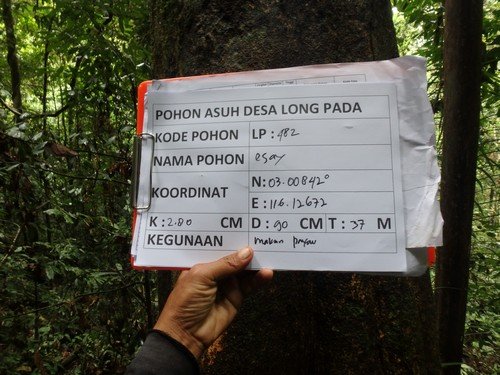 POHON ASUH DESA LONG PADA
KODE POHON LP : 482
NAMA POHON esay
KOORDINAT N: 03.00842°
E : 116.12672
K : 2.80 CM D : 90 CM T : 37 M
KEGUNAAN makan payau